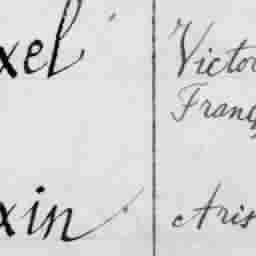 xel Victor
Franç
xin Aris